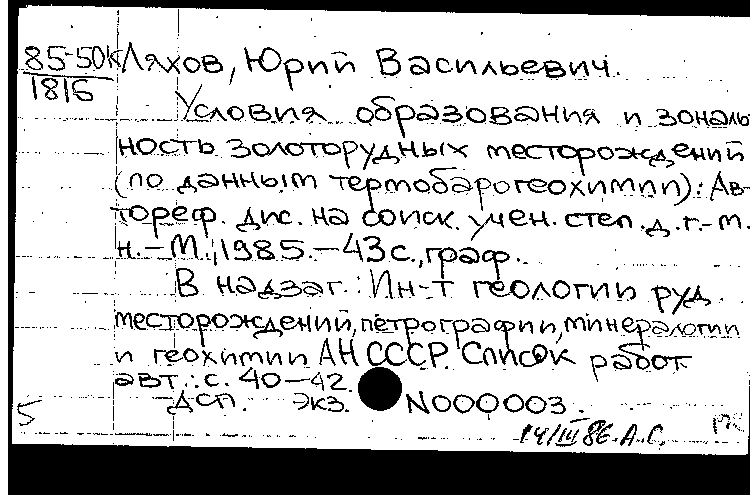 85-50к Ляхов, Юрий Васильевич.
1816
Условия образования и зональ-
ность золоторудных месторождений
(по данным термобарогеохимии): Ав-
тореф. дис. на соиск. учен. степ. д. г.-м.
н. - М., 1985. - 43 с., граф.
В надзаг.: Ин-т геологии руд.
месторождений, петрографии, минералогии
и геохимии АН СССР. Список работ
авт.: с. 40-42.
5 ДСП. Экз. N000003.
14/III 86. А.С.